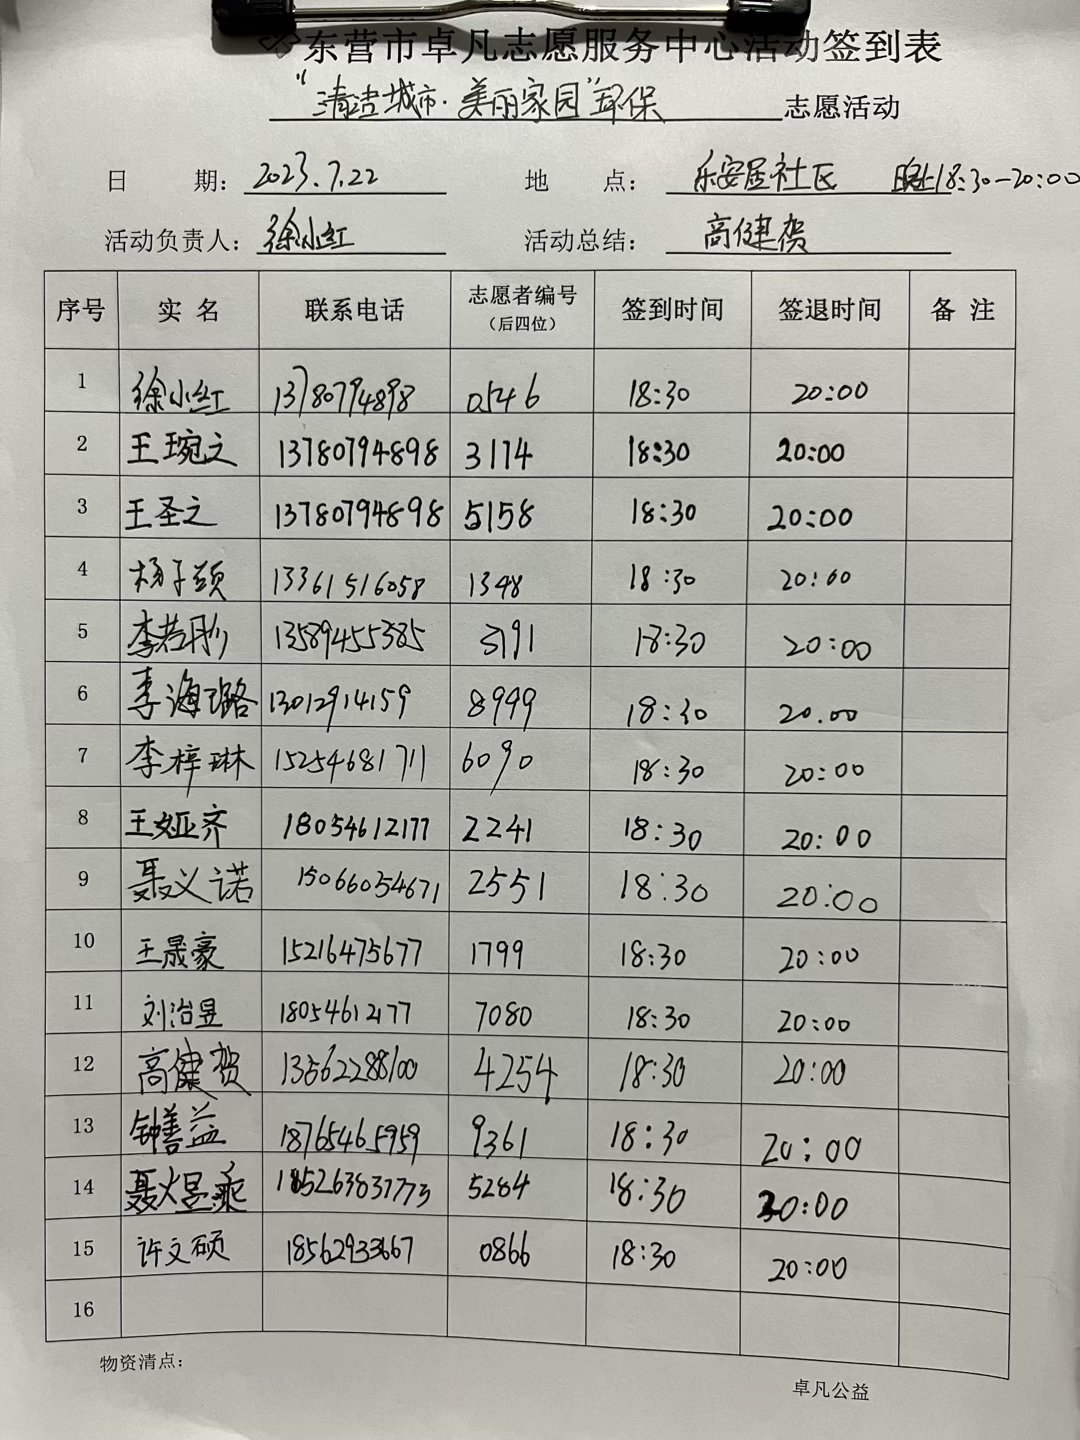 东营市卓凡志愿服务中心活动签到表
“清洁城市·美丽家园”环保 志愿活动
日 期：2023.7.22 地 点：乐安居社区 晚上18:30-20:00
活动负责人：徐小红 活动总结：高健贺
序号 实名 联系电话 志愿者编号（后四位） 签到时间 签退时间 备注
1 徐小红 13780794898 0546 18:30 20:00
2 王琬之 13780794898 3174 18:30 20:00
3 王圣之 13780794898 5158 18:30 20:00
4 杨子颉 13361516058 1348 18:30 20:00
5 李若彤 13589455385 3191 18:30 20:00
6 李海璐 13012914159 8999 18:30 20.00
7 李梓琳 15254681711 6090 18:30 20:00
8 王娅齐 18054612177 2241 18:30 20:00
9 聂义诺 15066054671 2551 18:30 20:00
10 王晟豪 15216475677 1799 18:30 20:00
11 刘治昱 18054612177 7080 18:30 20:00
12 高健贺 13562288100 4254 18:30 20:00
13 钟善益 18765465959 9361 18:30 20:00
14 聂煜乘 5284 18:30 20:00
15 许文硕 18562933667 0866 18:30 20:00
16
物资清点：
卓凡公益